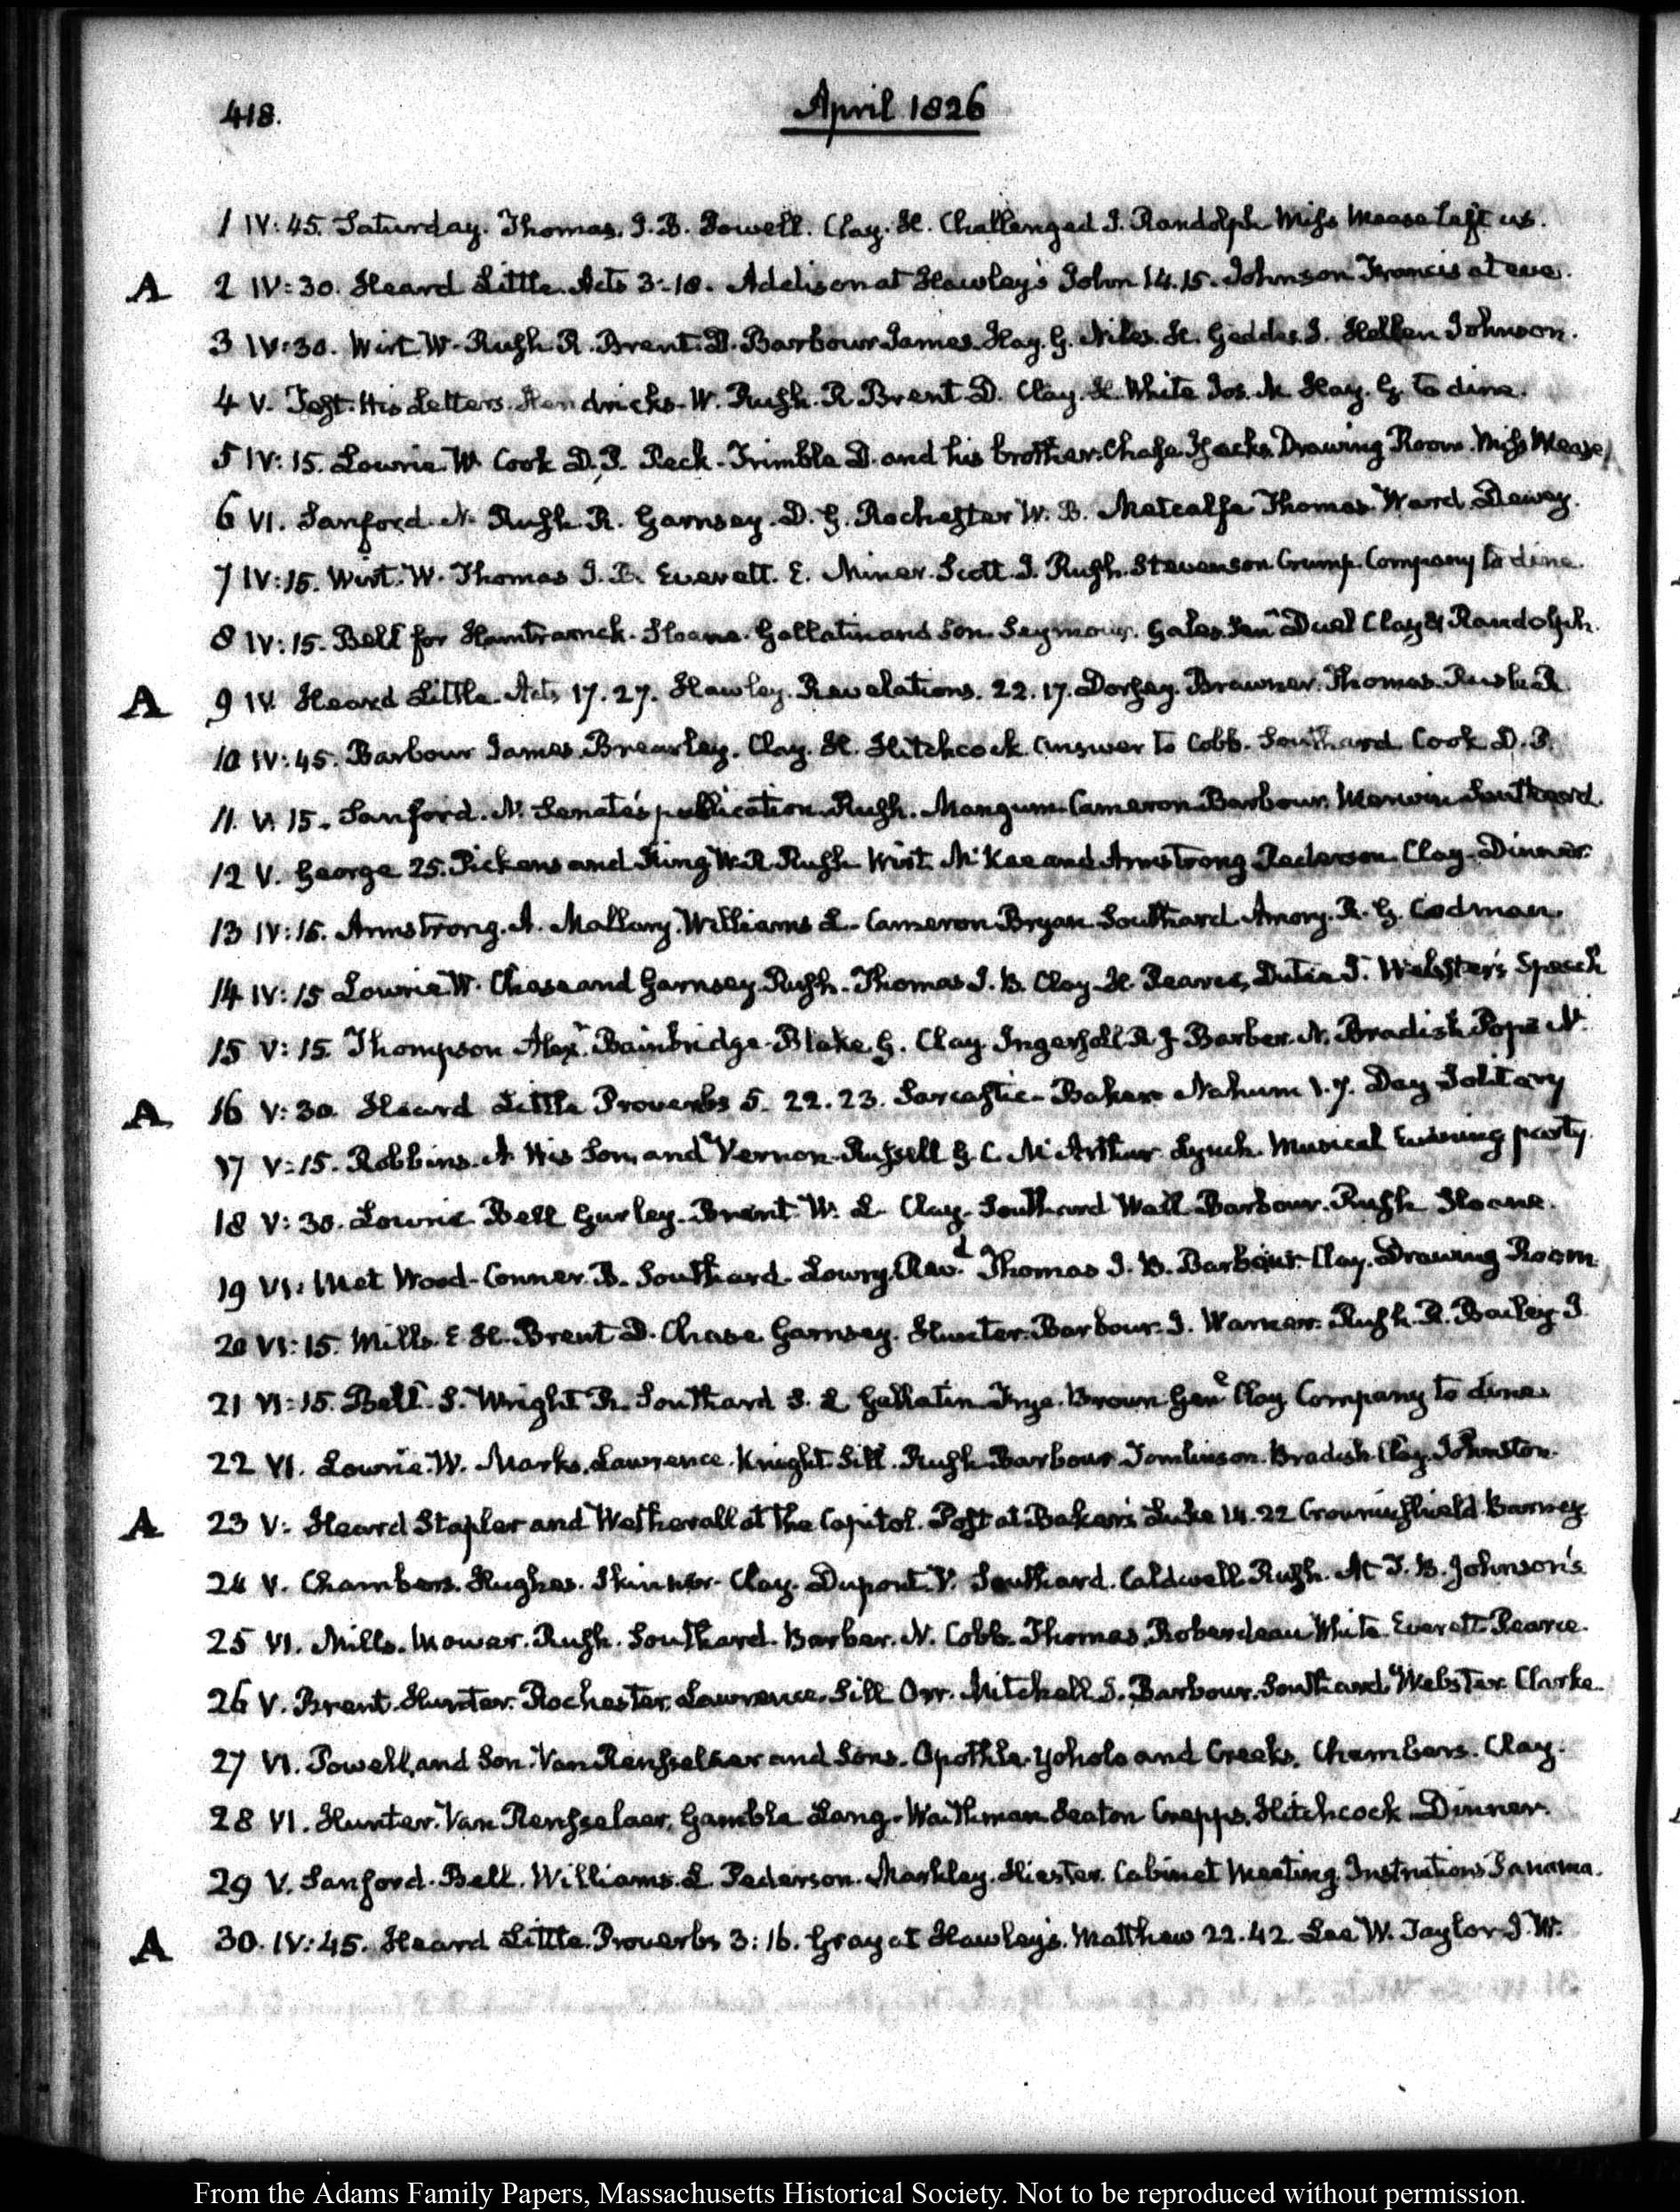 418.
April 1826
1 IV:45. Saturday. Thomas. J. B. Powell. Clay. H. Challenged J. Randolph Miss Mease left us.
A 2 IV:30. Heard Little. Acts 3:18. Addison at Hawley's John 14.15. Johnson Francis at eve.
3 IV:30. Wirt W. Rush R. Brent. D. Barbour James. Hay. G. Niles. H. Geddes. J. Hellen Johnson.
4 V. Test. His Letters. Hendricks. W. Rush. R Brent D. Clay. H. White Jos. M Hay. G. to dine.
5 IV:15. Lowrie W. Cook D. P. Peck. Trimble D. and his brother. Chase Drawing Room. Miss Mease
6 VI. Sanford. N. Rush R. Garnsey. D. G. Rochester W. B. Metcalfe Thomas. Ward. Dewey.
7 IV:15. Wirt. W. Thomas J. B. Everett. E. Miner. Scott. J. Rush. Stevenson Crump. Company to dine.
8 IV:15. Bell for Hamtramck. Sloane. Gallatin and Son. Seymour. Gales Senr. Duel Clay & Randolph.
A 9 IV. Heard Little. Acts 17.27. Hawley. Revelations. 22.17. Dorsey. Brawner. Thomas. Rush R
10 IV:45. Barbour James. Brearley. Clay. H. Hitchcock. answer to Cobb. Southard. Cook D. P.
11. V. 15. Sanford. N. Senate's publication. Rush. Mangum. Cameron. Barbour. Merwin Southard.
12 V. George 25. Pickens and King W. R. Rush Wirt. McKee and Armstrong Pederson. Clay. Dinner.
13 IV:15. Armstrong. A. Mallary. Williams L. Cameron Bryan. Southard Amory. R. G. Codman.
14 IV:15 Lowrie W. Chase and Garnsey. Rush. Thomas J. B. Clay. H. Pearce, Dutee J. Webster's Speech
15 V:15. Thompson Alexr. Bainbridge. Blake. G. Clay. Ingersoll R J Barber. N. Bradish Pope N.
A 16 V:30. Heard Little Proverbs 5. 22.23. Sarcastic. Baker Nahum 1.7. Day Solitary
17 V:15. Robbins. A His Son, and Vernon. Russell G. C. McArthur. Lynch. Musical Evening party.
18 V:30. Lowrie Bell Gurley. Brent W. L. Clay. Southard Wall Barbour. Rush Sloane.
19 VI: Met Wood. Conner. B. Southard. Lowry. Revd. Thomas J. B. Barbour. Clay. Drawing Room.
20 VI:15. Mills. E. H. Brent D. Chase Garnsey. Hunter. Barbour. J. Warner. Rush. R. Bailey J.
21 VI:15. Bell. S. Wright R. Southard S. L Gallatin Frye. Brown Genl. Clay Company to dine.
22 VI. Lowrie. W. Marks. Lawrence. Knight. Sill. Rush Barbour. Tomlinson. Bradish. Clay. Johnston.
A 23 V: Heard Stapler and Wetherall at the Capitol. Post at Baker's Luke 14.22 Crowninshield Barney.
24 V. Chambers. Hughes. Skinner. Clay. Dupont. V. Southard. Caldwell. Rush. At T. B. Johnson's
25 VI. Mills. Mower. Rush. Southard. Barber. N. Cobb. Thomas. Roberdeau White. Everett. Pearce.
26 V. Brent. Hunter. Rochester. Lawrence. Sill Orr. Mitchell S. Barbour. Southard. Webster. Clarke.
27 VI. Powell, and Son. Van Rensselaer and Sons. Opothle Yoholo and Creeks. Chambers. Clay.
28 VI. Hunter. Van Rensselaer. Gamble Lang. Waithman Seaton Crepps. Hitchcock. Dinner.
29 V. Sanford. Bell. Williams. L. Pederson. Markley. Hiester. Cabinet Meeting. Instructions Panama.
A 30. IV:45. Heard Little. Proverbs 3:16. Gray at Hawley's. Matthew 22.42. Lee W. Taylor J. W.
From the Adams Family Papers, Massachusetts Historical Society. Not to be reproduced without permission.